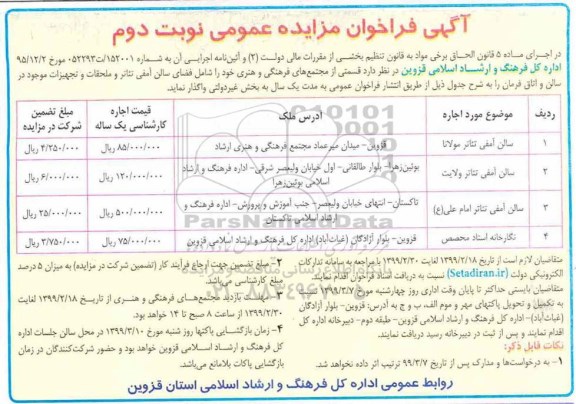 آگهی فراخوان مزایده عمومی نوبت دوم
در اجرای ماده ۵ قانون الحاق برخی مواد به قانون تنظیم بخشی از مقررات مالی دولت (۲) و آئین‌نامه اجرایی آن به شماره ۱۵۲۰۰۱/ت۵۲۲۹۳ مورخ ۹۵/۱۲/۲
اداره کل فرهنگ و ارشاد اسلامی قزوین در نظر دارد قسمتی از مجتمع‌های فرهنگی و هنری خود را شامل فضای سالن آمفی تئاتر و ملحقات و تجهیزات موجود در
سالن و اتاق فرمان را به شرح جدول ذیل از طریق انتشار فراخوان عمومی به مدت یک سال به بخش غیردولتی واگذار نماید.
ردیف موضوع مورد اجاره آدرس ملک قیمت اجاره کارشناسی یک ساله مبلغ تضمین شرکت در مزایده
۱ سالن آمفی تئاتر مولانا قزوین- میدان میرعماد مجتمع فرهنگی و هنری ارشاد ۸۵/۰۰۰/۰۰۰ ریال ۴/۲۵۰/۰۰۰ ریال
۲ سالن آمفی تئاتر ولایت بوئین‌زهرا- بلوار طالقانی- اول خیابان ولیعصر شرقی- اداره فرهنگ و ارشاد اسلامی بوئین‌زهرا ۱۲۰/۰۰۰/۰۰۰ ریال ۶/۰۰۰/۰۰۰ ریال
۳ سالن آمفی تئاتر امام علی(ع) تاکستان- انتهای خیابان ولیعصر- جنب آموزش و پرورش- اداره فرهنگ و ارشاد اسلامی تاکستان ۵۰۰/۰۰۰/۰۰۰ ریال ۲۵/۰۰۰/۰۰۰ ریال
۴ نگارخانه استاد محصص قزوین- بلوار آزادگان (غیاث‌آباد) اداره کل فرهنگ و ارشاد اسلامی قزوین ۷۵/۰۰۰/۰۰۰ ریال ۳/۷۵۰/۰۰۰ ریال
متقاضیان لازم است از تاریخ ۱۳۹۹/۲/۱۸ لغایت ۱۳۹۹/۲/۳۰ با مراجعه به سامانه تدارکات
الکترونیکی دولت (Setadiran.ir) نسبت به دریافت اسناد فراخوان اقدام نمایند.
متقاضیان بایستی حداکثر تا پایان وقت اداری روز چهارشنبه مورخ ۱۳۹۹/۳/۷ نسبت
به تکمیل و تحویل پاکتهای مهر و موم الف، ب و ج به آدرس: قزوین- بلوار آزادگان
(غیاث‌آباد)- اداره کل فرهنگ و ارشاد اسلامی قزوین- طبقه دوم- دبیرخانه اداره کل
اقدام نمایند و پس از ثبت در دبیرخانه رسید دریافت نمایند.
نکات قابل ذکر:
۱- به درخواست‌ها و مدارک پس از تاریخ ۹۹/۳/۷ ترتیب اثر داده نخواهد شد.
۲- مبلغ تضمین جهت ارجاع فرآیند کار (تضمین شرکت در مزایده) به میزان ۵ درصد
مبلغ کارشناسی می باشد.
۳- مهلت بازدید مجتمع‌های فرهنگی و هنری از تاریخ ۱۳۹۹/۲/۱۸ لغایت
۱۳۹۹/۲/۳۰ از ساعت ۸ صبح تا ۱۴ خواهد بود.
۴- زمان بازگشایی پاکتها روز شنبه مورخ ۱۳۹۹/۳/۱۰ در محل سالن جلسات اداره
کل فرهنگ و ارشاد اسلامی قزوین خواهد بود و حضور شرکت‌کنندگان در زمان
بازگشایی پاکات بلامانع می‌باشد.
روابط عمومی اداره کل فرهنگ و ارشاد اسلامی استان قزوین
ParsNamadData